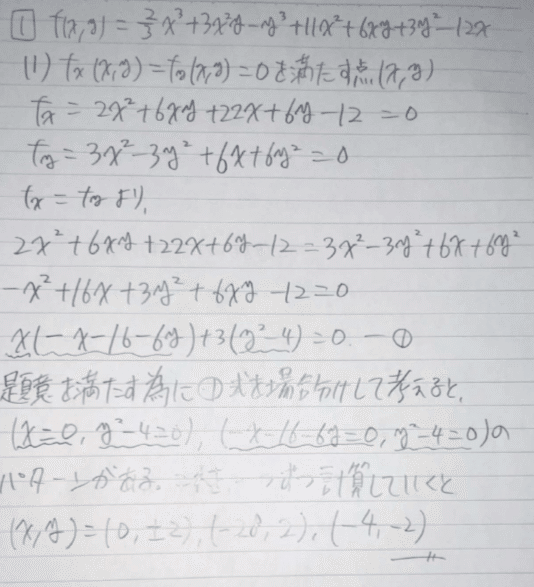 1 f(x,y) = 2/3 x³+3x²y-y³+11x²+6xy+3y²-12x
(1) fx(x,y)=fy(x,y)=0を満たす点(x,y)
fx = 2x²+6xy+22x+6y-12 = 0
fy = 3x²-3y²+6x+6y² = 0
fx = fyより,
2x²+6xy+22x+6y-12 = 3x²-3y²+6x+6y²
-x²+16x+3y²+6xy-12=0
x(-x-16-6y)+3(y²-4)=0. ―①
題意を満たす為に①式を場合分けして考えると,
(x=0, y²-4=0), (-x-16-6y=0, y²-4=0)の
パターンがある。 一つずつ計算していくと
(x,y)=(0,±2), (-28,2), (-4,-2)